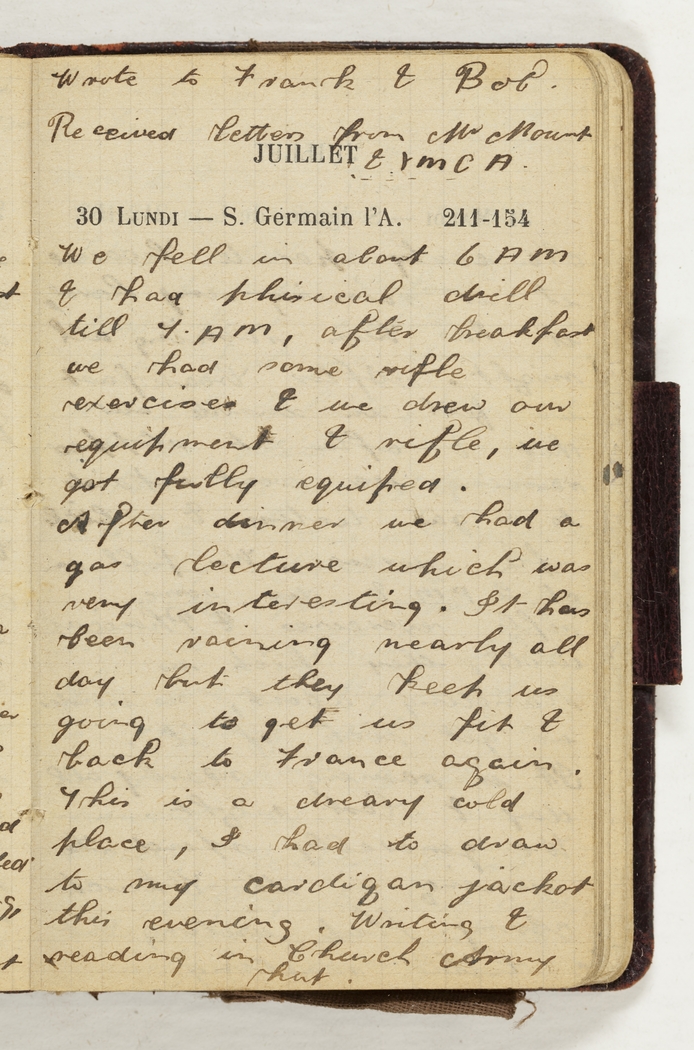 Wrote to Frank & Bob.
Received letters from Mr Mount
JUILLET & YMCA.
30 LUNDI — S. Germain l'A. 211-154
We fell in about 6 AM
& had phisical drill
till 7. AM, after breakfast
we had some rifle
exercises & we drew our
equipment & rifle, we
got fully equiped.
After dinner we had a
gas lecture which was
very interesting. It has
been raining nearly all
day but they keep us
going to get us fit &
back to France again.
This is a dreary cold
place, I had to draw
to my cardigan jacket
this evening. Writing &
reading in Church Army
hut.